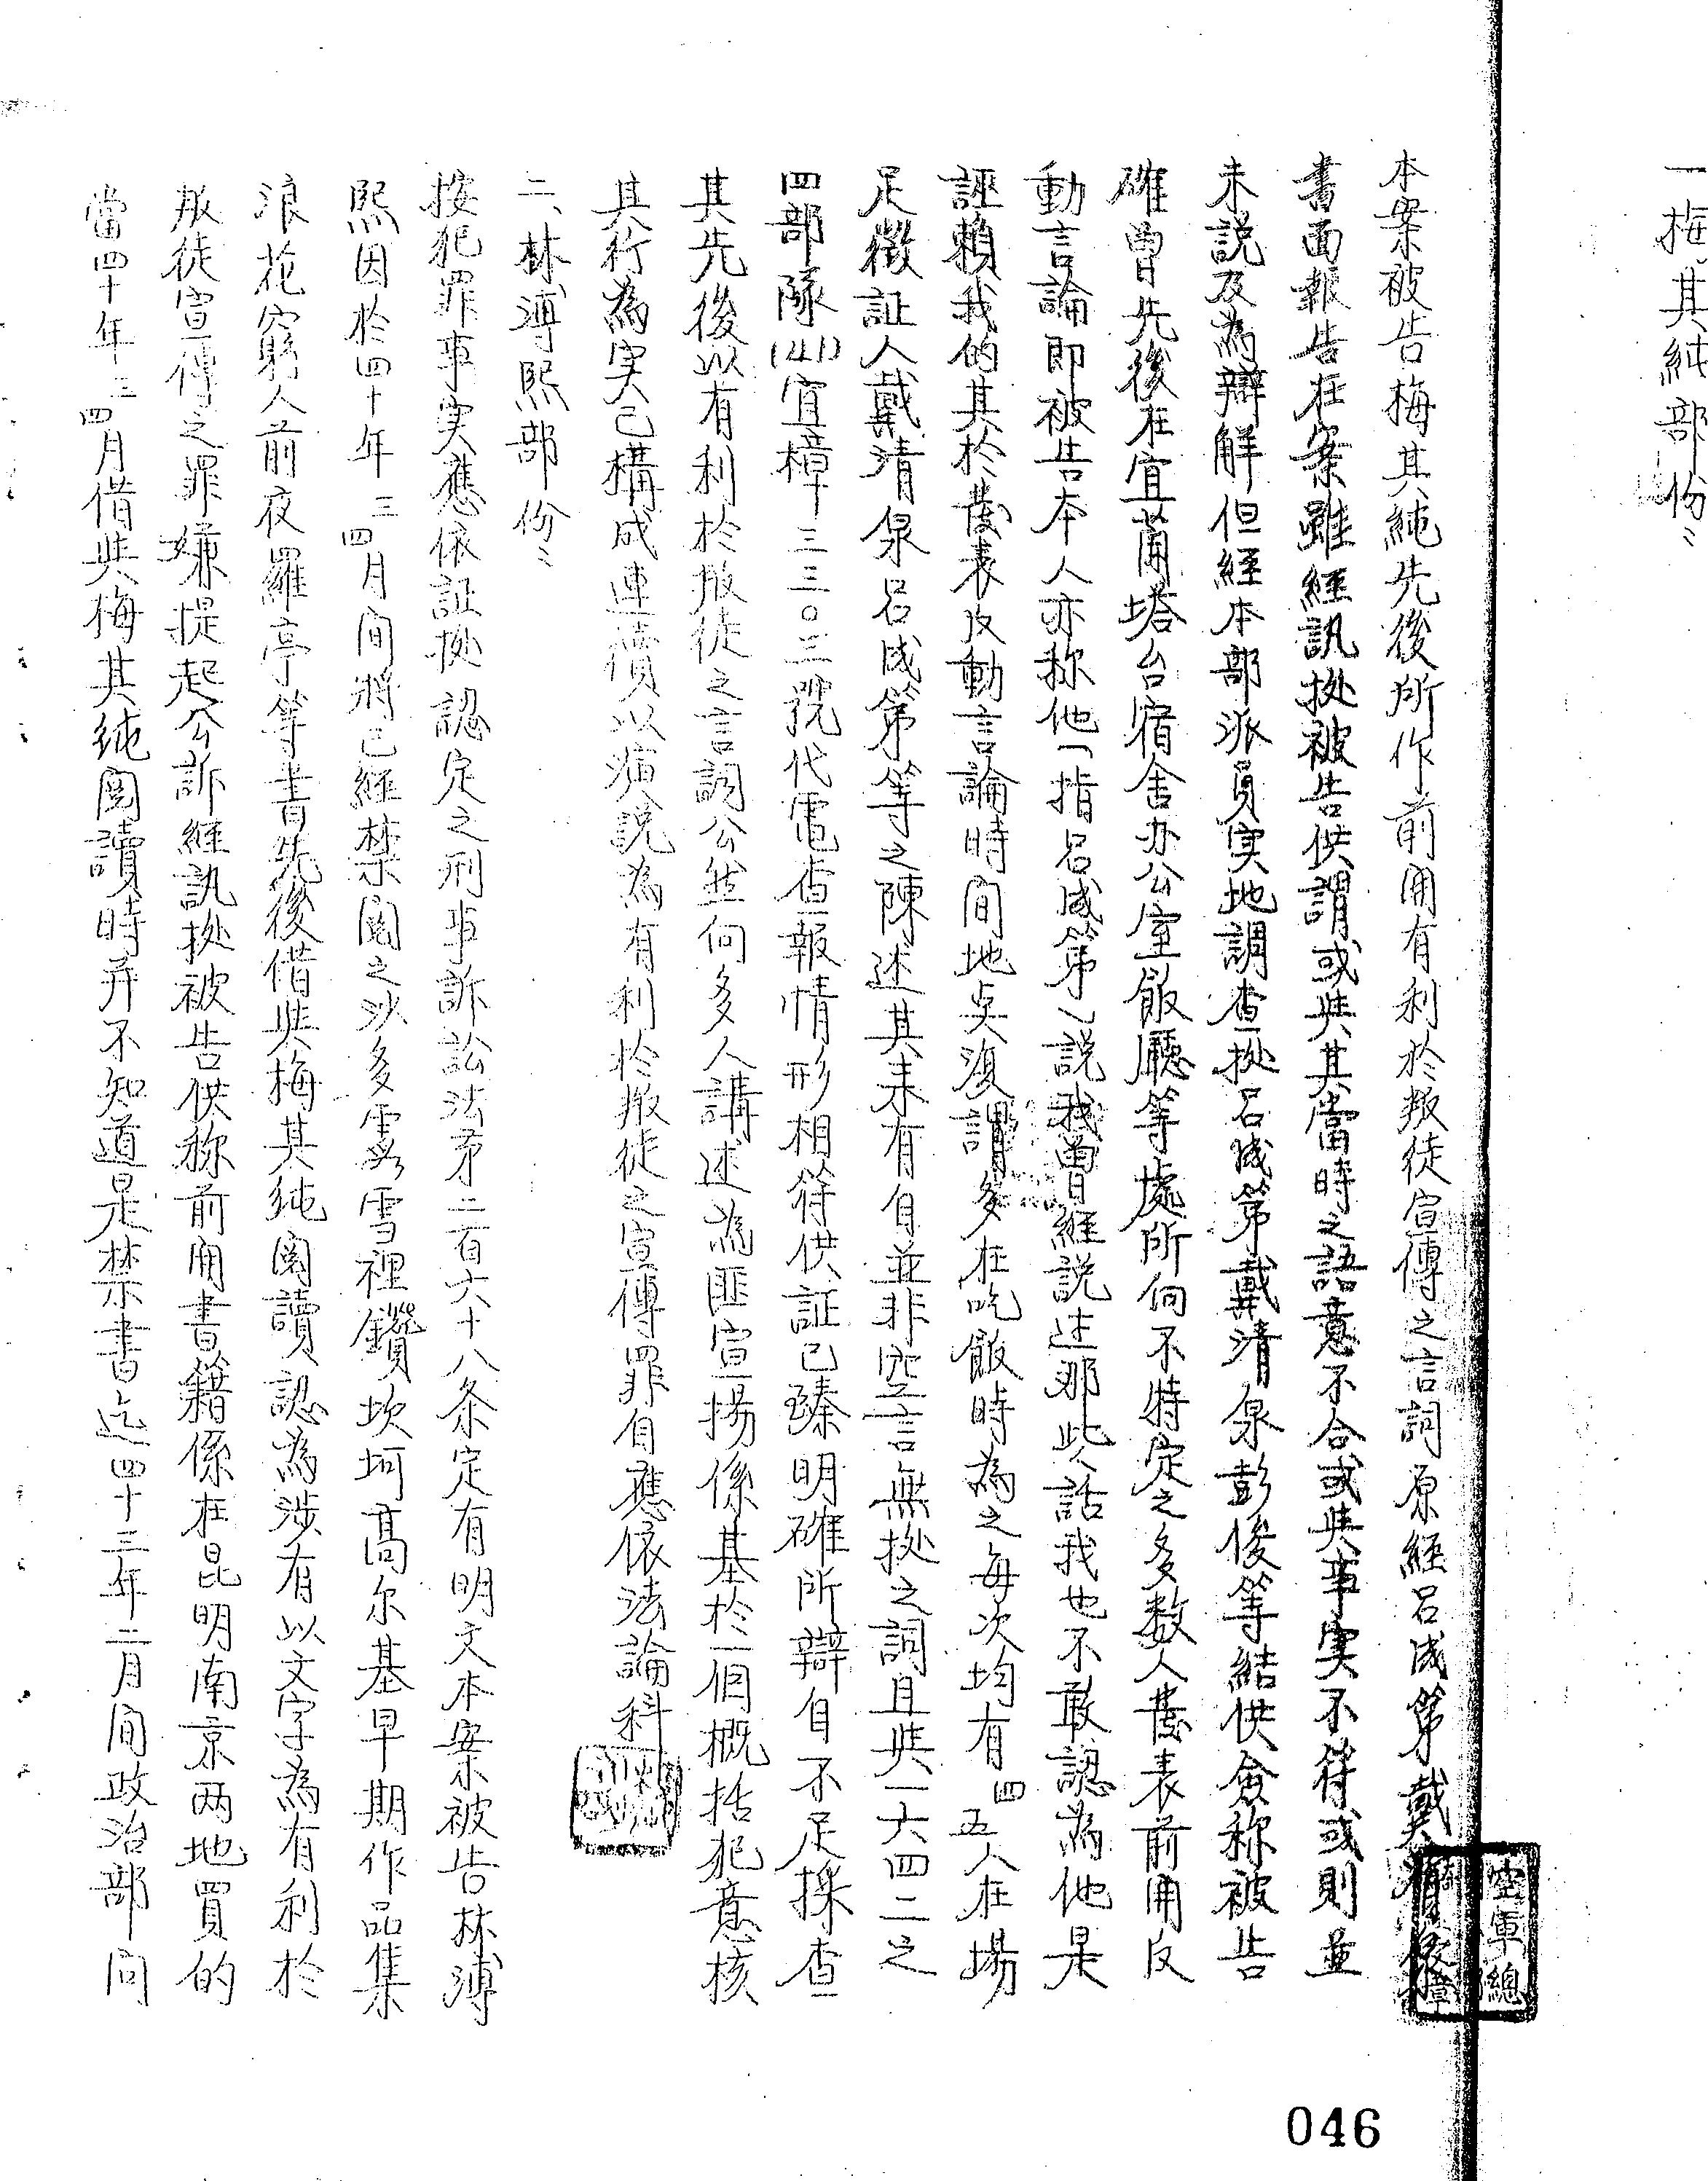 一梅其純部份:
本案被告梅其純先後所作前開有利於叛徒宣傳之言詞原經呂成第戴清
書面報告在案雖經訊抝被告供謂或與其當時之語意不合或與事实不符或則並
未説及為辯解但經本部派員实地調查抝呂成第戴清泉彭俊等結供僉称被告
確曾先後在宜蘭塔台宿舍办公室飯廳等處所向不特定之多数人發表前開反
動言論即被告本人亦称他「指呂成第」説我曾經説过那些話我也不敢認為他是
誣賴我的其於發表反動言論時间地点復謂多在吃飯時為之每次均有四五人在場
足徵証人戴清泉呂成第等之陳述其来有自並非空言無抝之詞且與一大四二之
四部隊(41)宜樟三三〇三號代電查報情形相符供証已臻明確所辯自不足採查
其先後以有利於叛徒之言詞公然向多人講述為匪宣揚係基於一個概括犯意核
其行為实已構成連續以演説為有利於叛徒之宣傳罪自應依法論科
二、林溥熙部份:
按犯罪事实應依証抝認定之刑事訴訟法第二百六十八条定有明文本案被告林溥
熙因於四十年三四月间將已經禁閱之沙多霧雪裡鑽坎坷高尔基早期作品集
浪花窮人前夜羅亭等書先後借與梅其純閱讀認為涉有以文字為有利於
叛徒宣傳之罪嫌提起公訴經訊抝被告供称前開書籍係在昆明南京两地買的
當四十年三四月借與梅其純閱讀時并不知道是禁書迄四十三年二月间政治部向
空軍總
046